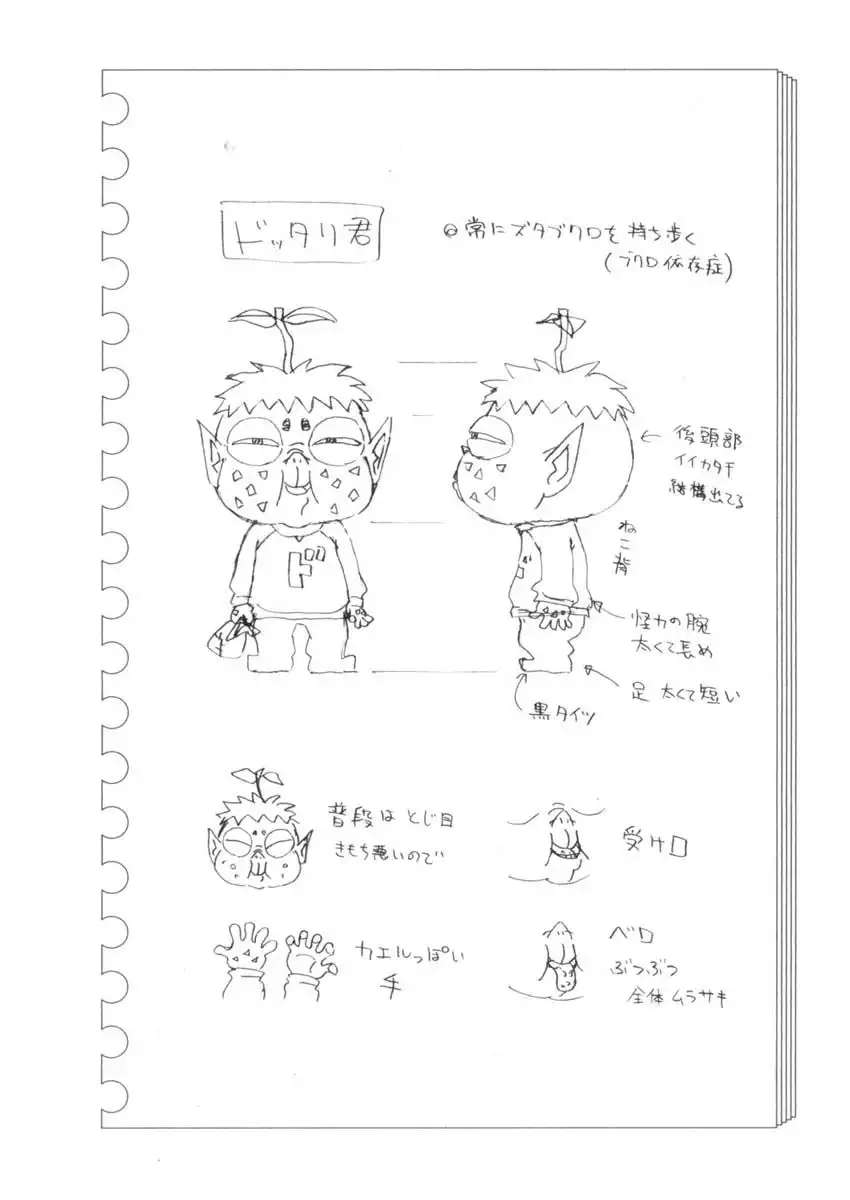 ドッタリ君
◎常にズタブクロを持ち歩く
(ブクロ依存症)
ド
後頭部
イイカタチ
結構出てる
ねこ背
怪力の腕
太くて長め
足 太くて短い
黒タイツ
普段はとじ目
きもち悪いので
受け口
カエルっぽい
手
ベロ
ぶつぶつ
全体ムラサキ